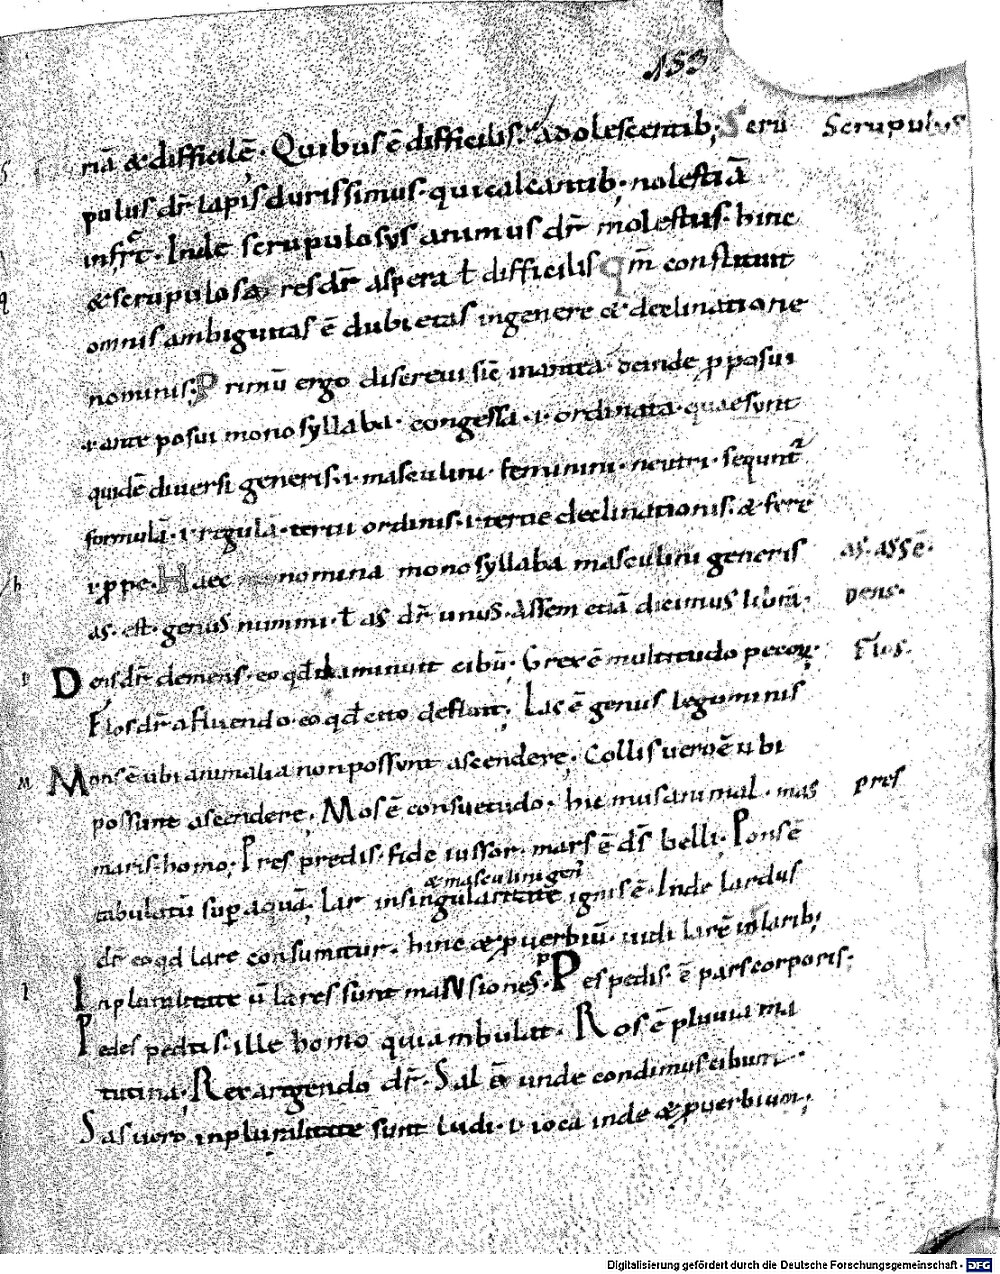 153
riā & difficilē. Quibus ē difficilis. adolescentib; Scru Scrupulus
pulus dr̄ lapis durissimus. qui calcantib; molestiā
infr̄t. Inde scrupulosus animus dr̄ molestus. hinc
& scrupulosa res dr̄ aspera ł difficilis Qm̄ constituit
omnis ambiguitas ē dubietas in genere & declinatione
nominis; Primū ergo discrevi sic̄ in antea deinde pposui
.i. ante posui monosyllaba. congessa .i. ordinata. quae sunt
quidē diversi generis .i. masculini. feminini. neutri. sequunt̄
formulā .i. regulā. tertii ordinis .i. tertie declinationis. & fere
.i. ppe. Haec nomina monosyllaba masculini generis as. assē.
as. est. genus nummi. ł as dr̄ unus. Assem etiā dicimus librā. Dens.
Dens dr̄ demens. eo qd diminuit cibū. Grex ē multitudo pecoꝝ. Flos.
Flos dr̄ a fluendo. eo qd cito defluit; Lac ē genus leguminis
M Mons ē ubi animalia non possunt ascendere. Collis vero ē ubi
possunt ascendere. Mos ē consuetudo. hic mus animal. mas pres
maris. homo; Pres predis. fide iussor. mars ē ds̄ belli. Pons ē
& masculini gen̄
tabulatū sup aquā. Lar in singularitate ignis ē. Inde lardus
dr̄ eo qd lare consumitur. hinc & pverbiū. vidi larē in larib;
In pluralitate ū lares sunt mansiones. Pes pedis. ē pars corporis.
Pedes peditis. ille homo qui ambulat. Ros ē pluvia ma
tutina; Ren a rigendo dr̄. Sal ē unde condimus cibum.
Sas vero in pluralitate sunt ludi. ł ioca inde & pverbium;
Digitalisierung gefördert durch die Deutsche Forschungsgemeinschaft - DFG